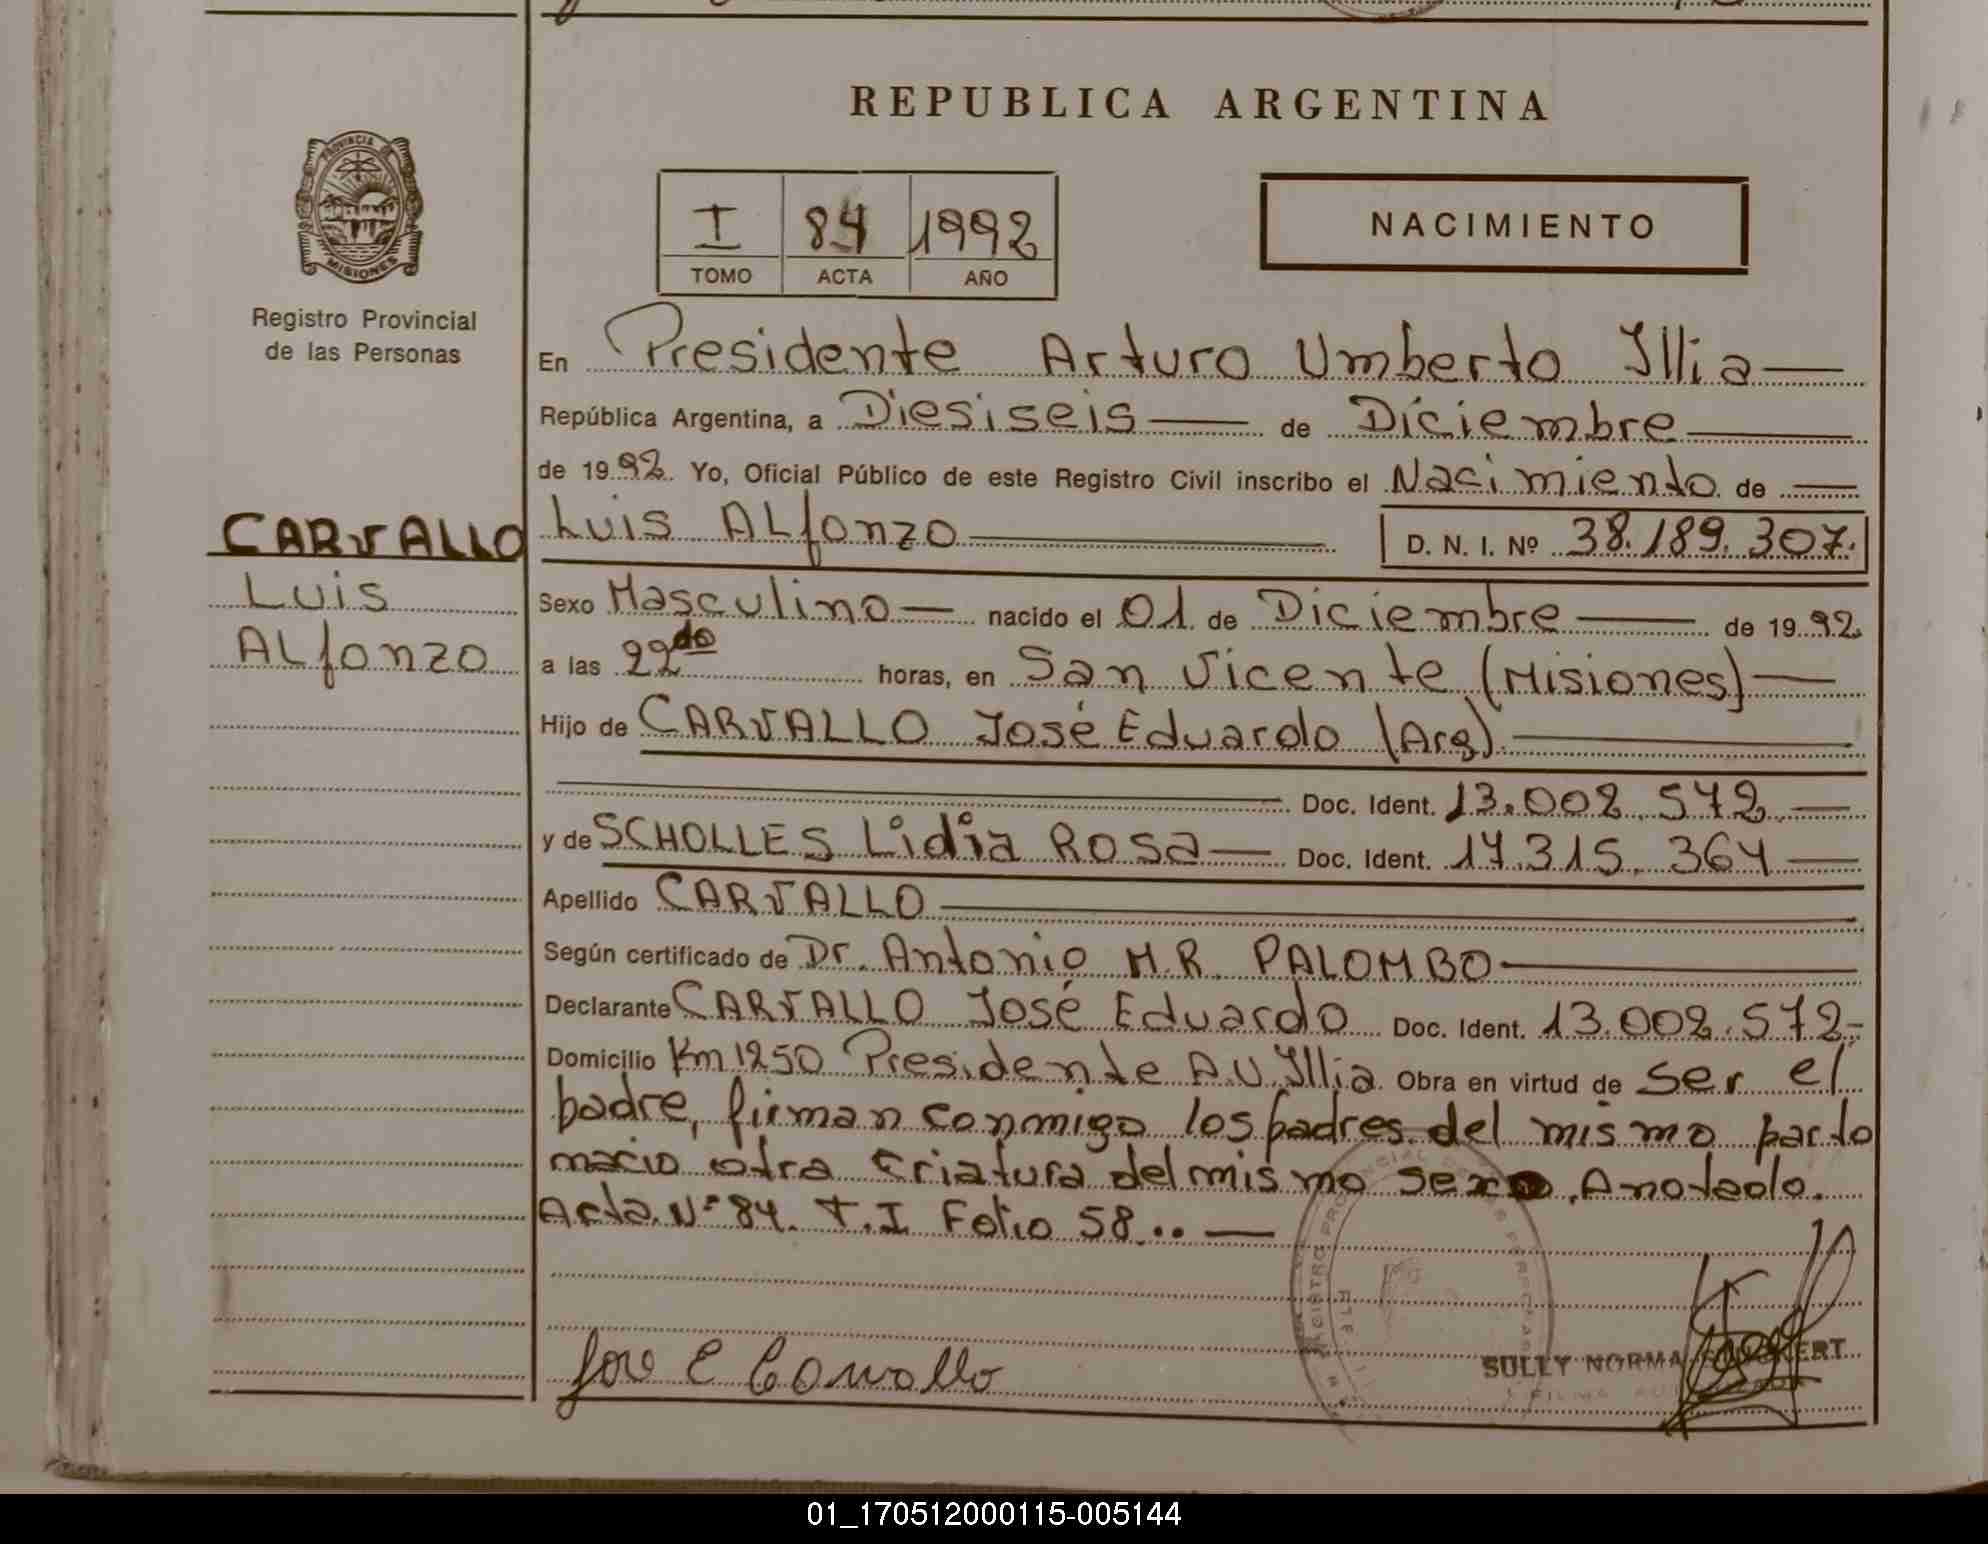 REPUBLICA ARGENTINA
PROVINCIA DE
MISIONES
Registro Provincial
de las Personas
I 84 1992
TOMO ACTA AÑO
NACIMIENTO
En Presidente Arturo Umberto Illia
República Argentina, a Diesiseis de Diciembre
de 1992. Yo, Oficial Público de este Registro Civil inscribo el Nacimiento de
CARVALLO
Luis
ALfonzo
Luis ALfonzo D. N. I. Nº 38.189.307.
Sexo Masculino nacido el 01 de Diciembre de 1992
a las 22do horas, en San Vicente (Misiones)
Hijo de CARVALLO José Eduardo (Arg)
Doc. Ident. 13.002.572
y de SCHOLLES Lidia Rosa Doc. Ident. 17.315.364
Apellido CARVALLO
Según certificado de Dr. Antonio M.R. PALOMBO
Declarante CARVALLO José Eduardo Doc. Ident. 13.002.572-
Domicilio Km 1250 Presidente A.U. Illia Obra en virtud de ser el
padre, firman conmigo los padres del mismo parto
nacio otra criatura del mismo sexo. Anotado.
Acta Nº 84. T.I Folio 58..
Jose E Carvallo
SULLY NORMA
01_170512000115-005144